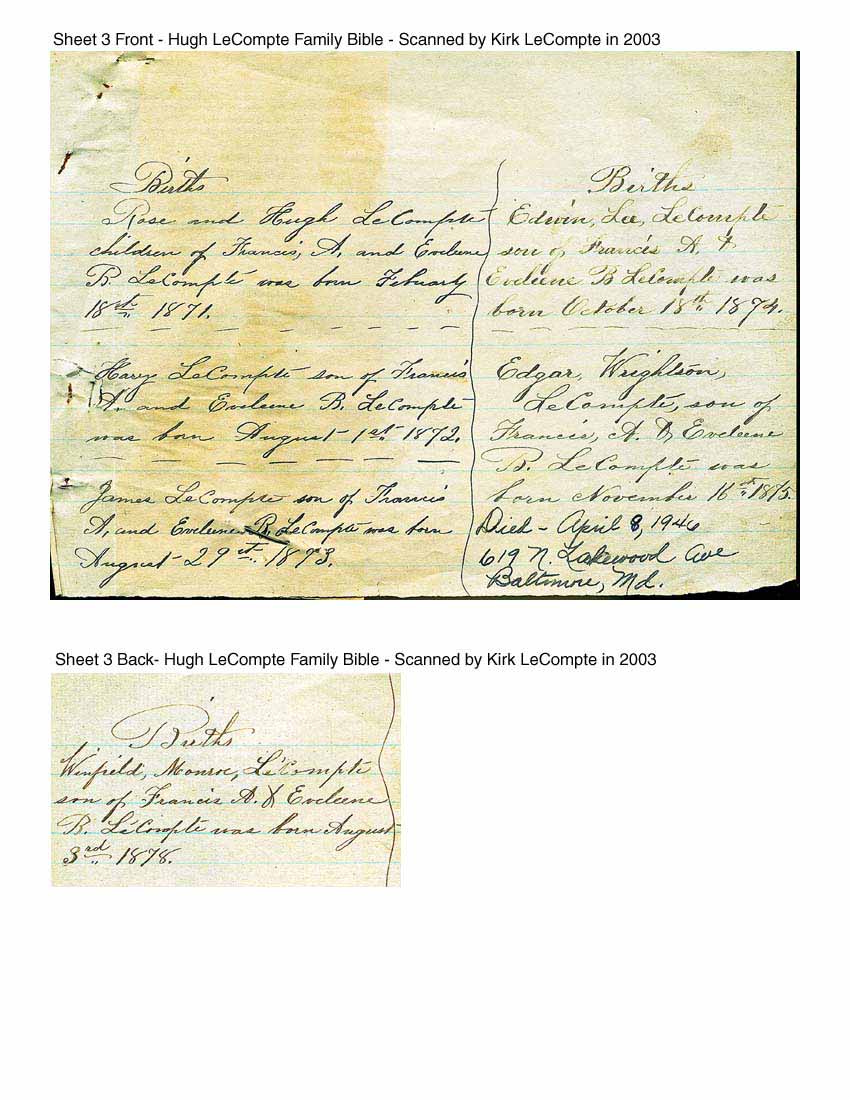 Sheet 3 Front - Hugh LeCompte Family Bible - Scanned by Kirk LeCompte in 2003
Births
Rose and Hugh LeCompte
children of Francis, A. and Eveleene
B. LeCompte was born Febuary
18st 1871.
Harry LeCompte son of Francis
A. and Eveleene B. LeCompte
was born August 1st 1872.
James LeCompte son of Francis
A, and Eveleene B. LeCompte was born
August 29st 1873.
Births
Edwin, Lee, LeCompte
son of Francis A. &
Eveleene B LeCompte was
born October 18th 1874.
Edgar, Wrightson,
LeCompte, son of
Francis, A. & Eveleene
B. LeCompte was
born November 16st 1875.
Died - April 8, 1946
619 N. Lakewood Ave
Baltimore, Md.
Sheet 3 Back- Hugh LeCompte Family Bible - Scanned by Kirk LeCompte in 2003
Births
Winfield, Monroe, LeCompte
son of Francis A. & Eveleene
B. LeCompte was born August
3rd 1878.